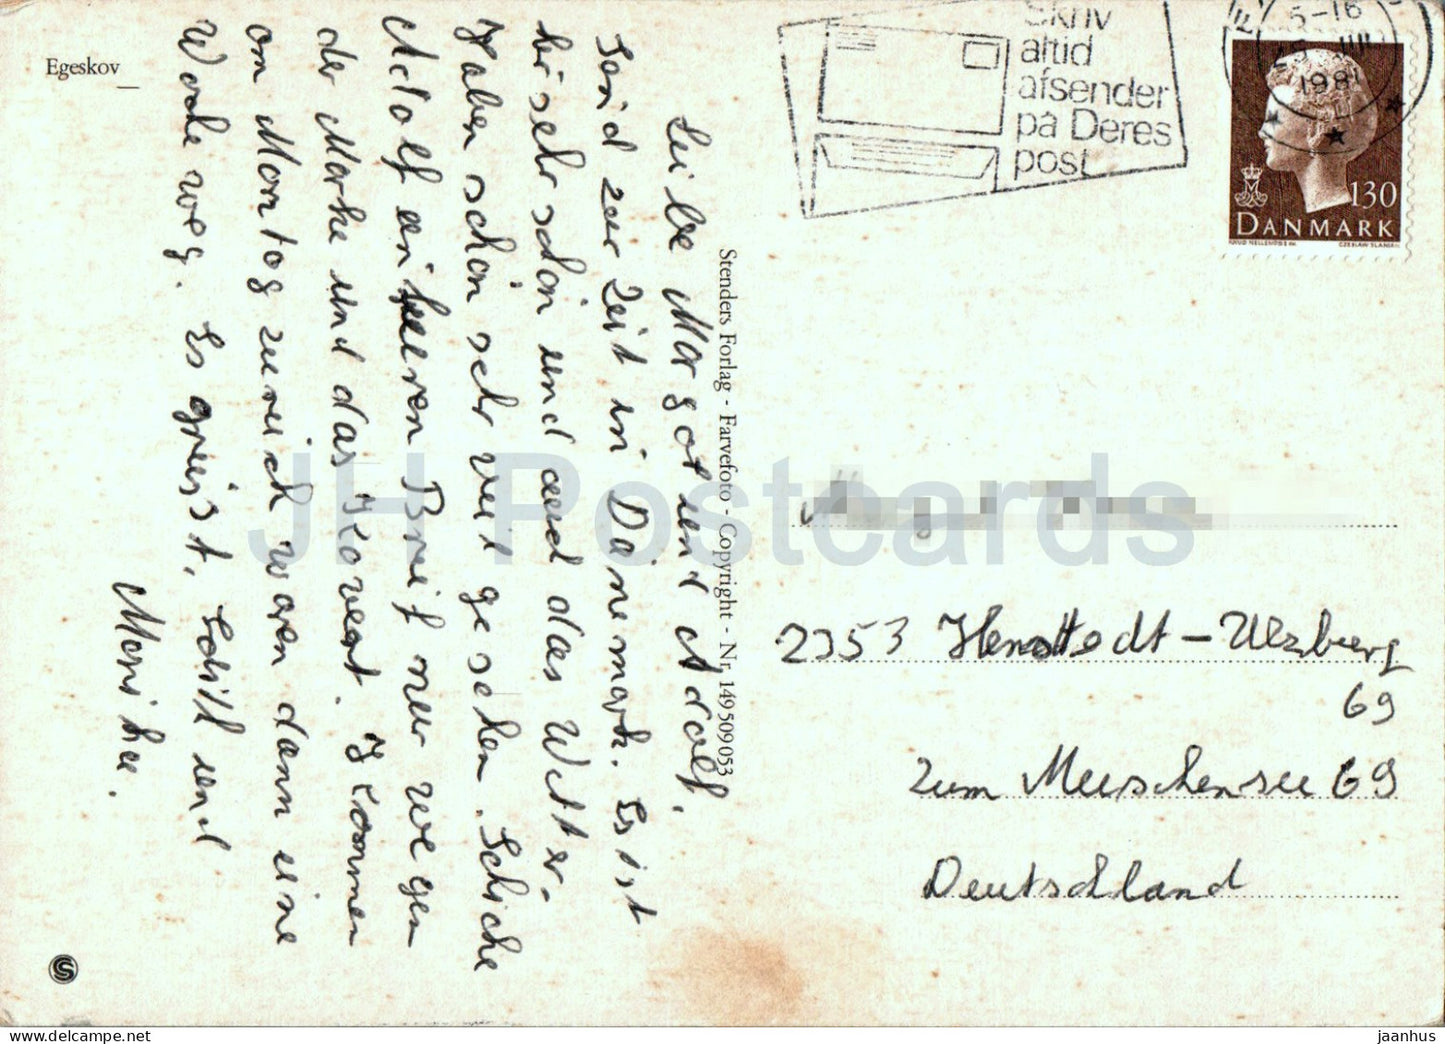 Egeskov
Leibe Margot und Adolf,
Sind zur Zeit in Dänemark. Es ist
hir sehr schön und auch das Wetter-
Haben schon sehr veil gesehen. Schicke
Adolf ein leeren Breif nur wegen
der Marke und das Kovert. Kommen
am Montag zurück waren dann eine
Woche weg. Es grüsst, Willi und
Monika.
Stenders Forlag - Farvefoto - Copyright - Nr. 149509053
Skriv
altid
afsender
på Deres
post
5-16
1981
130
DANMARK
CZESLAW SLANIA
2353 Henstedt-Ulzburg
69
zum Meeschensee 69
Deutschland
JH Postcards
jaanhus
www.delcampe.net